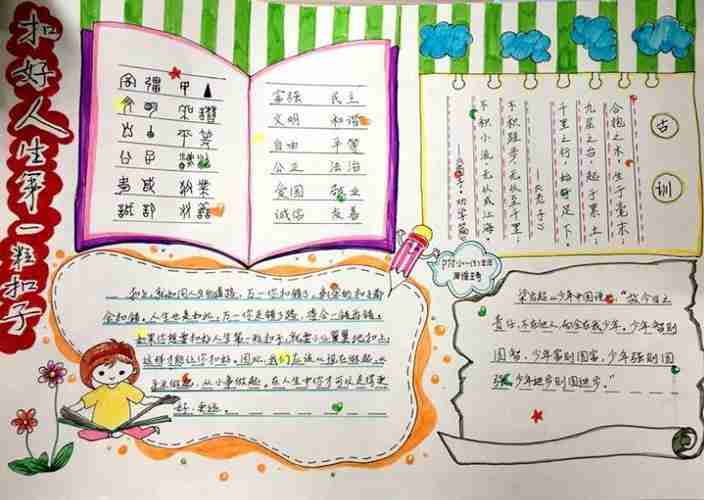 扣好人生第一粒扣子
富强 民主
文明 和谐
自由 平等
公正 法治
爱国 敬业
诚信 友善
古训
合抱之木，生于毫末；
九层之台，起于累土；
千里之行，始于足下。
——《老子》
不积跬步，无以至千里，
不积小流，无以成江海。
——《荀子·劝学篇》
就如同人生的道路，万一你扣错了，剩余的扣子都
会扣错。人生也是如此，万一你走错了路，将会一错再错。
如果你想要扣好人生第一粒扣子，就要小心翼翼地扣上，
这样才能让你扣好。因此，我们应该从现在做起，
做起，从小事做起。在人生中你才可以走得更
好、更远。
梁启超《少年中国说》，“故今日之
责任，不在他人，而全在我少年。少年智则
国智，少年富则国富，少年强则国
强，少年进步则国进步。”